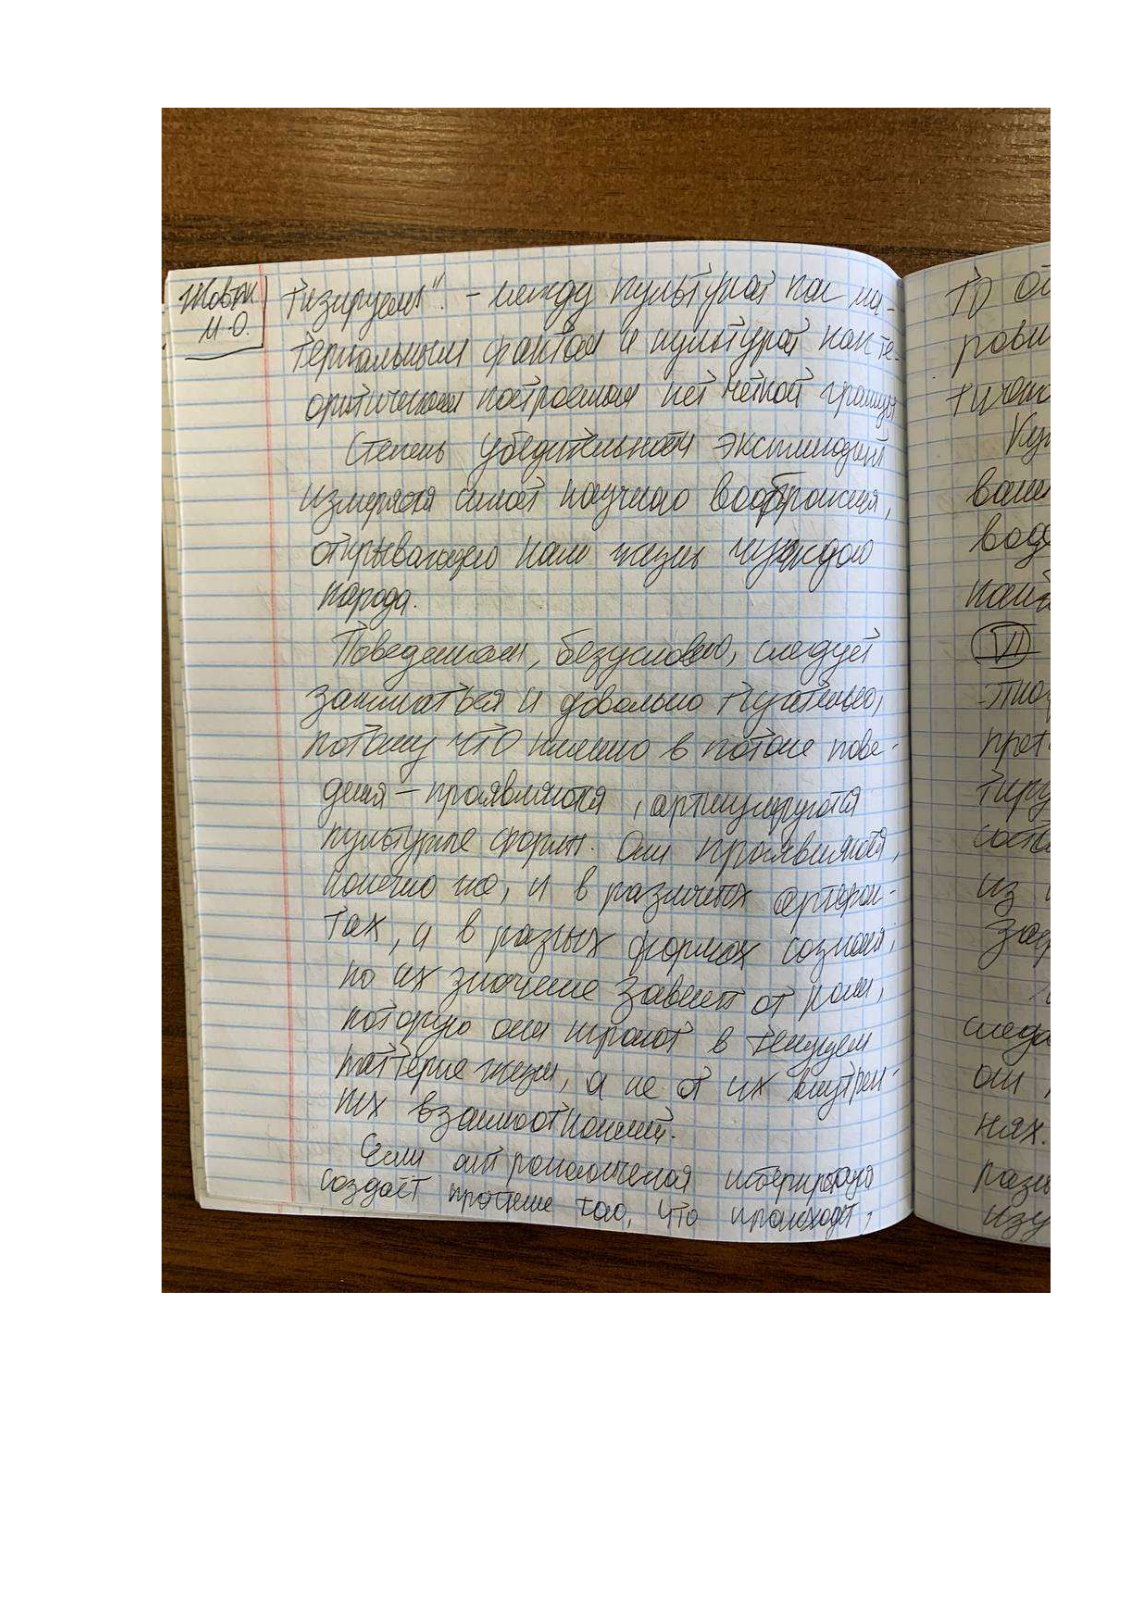 М.О.
тизируем". - между культурой как ма-
териальным фактом и культурой как те-
оритическим построением нет чёткой границы
Степень убедительности экспликаций
измеряется силой научного воображения,
открывающего нам жизнь чуждого
народа.
Поведением, безусловно, следует
заниматься и довольно тщательно,
потому что именно в потоке пове-
дения - проявляются, артикулируются
культурные формы. Они проявляются,
конечно же, и в различных артефак-
тах, а в разных формах сознания,
но их значение зависит от роли,
которую они играют в текущем
паттерне жизни, а не от их внутрен-
них взаимоотношений.
Если антропологическая интерпретация
создаёт прочтение того, что происходит,
то
VI
из